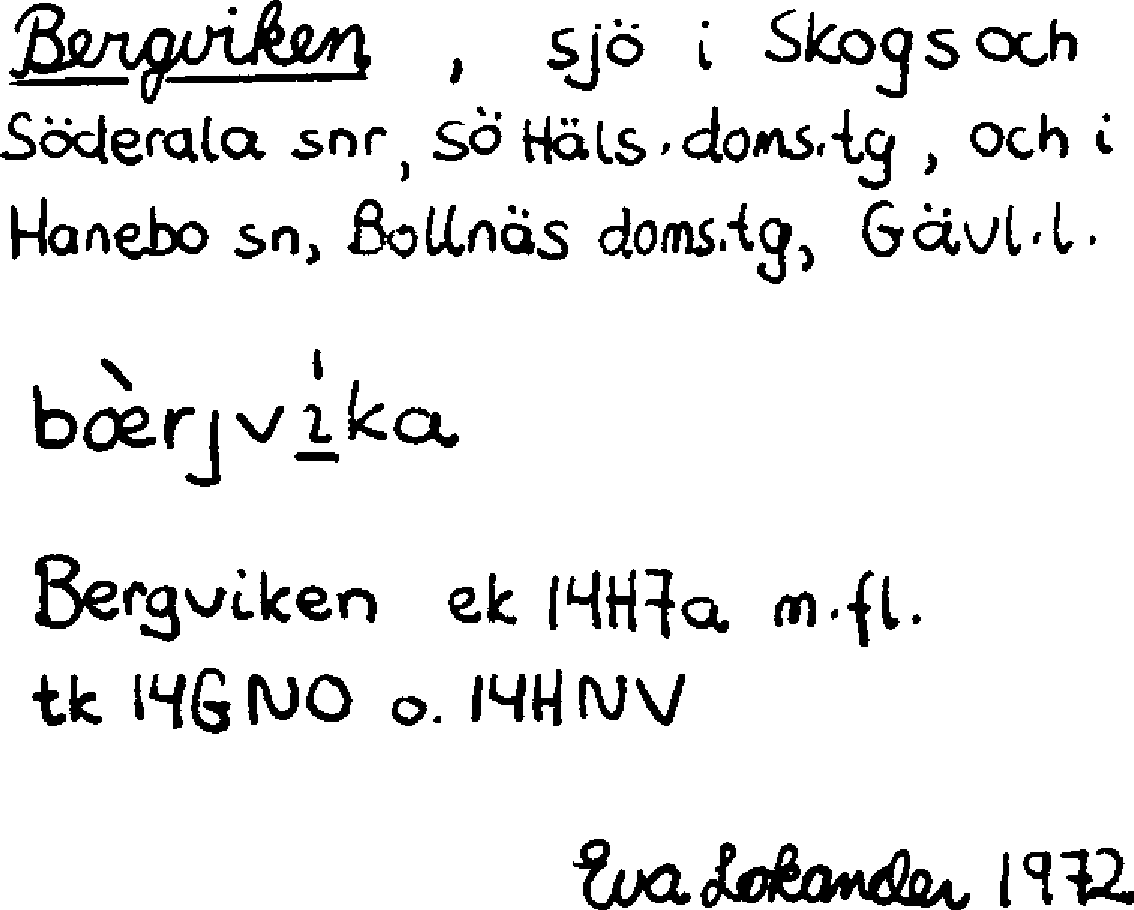 Bergviken, sjö i Skogs och
Söderala snr, Sö Häls. doms.tg, och i
Hanebo sn, Bollnäs doms.tg, Gävl.l.
bæ̀rjvı̲́ka
Bergviken ek 14H7a m.fl.
tk 14G NO o. 14H NV
Eva Lokander 1972